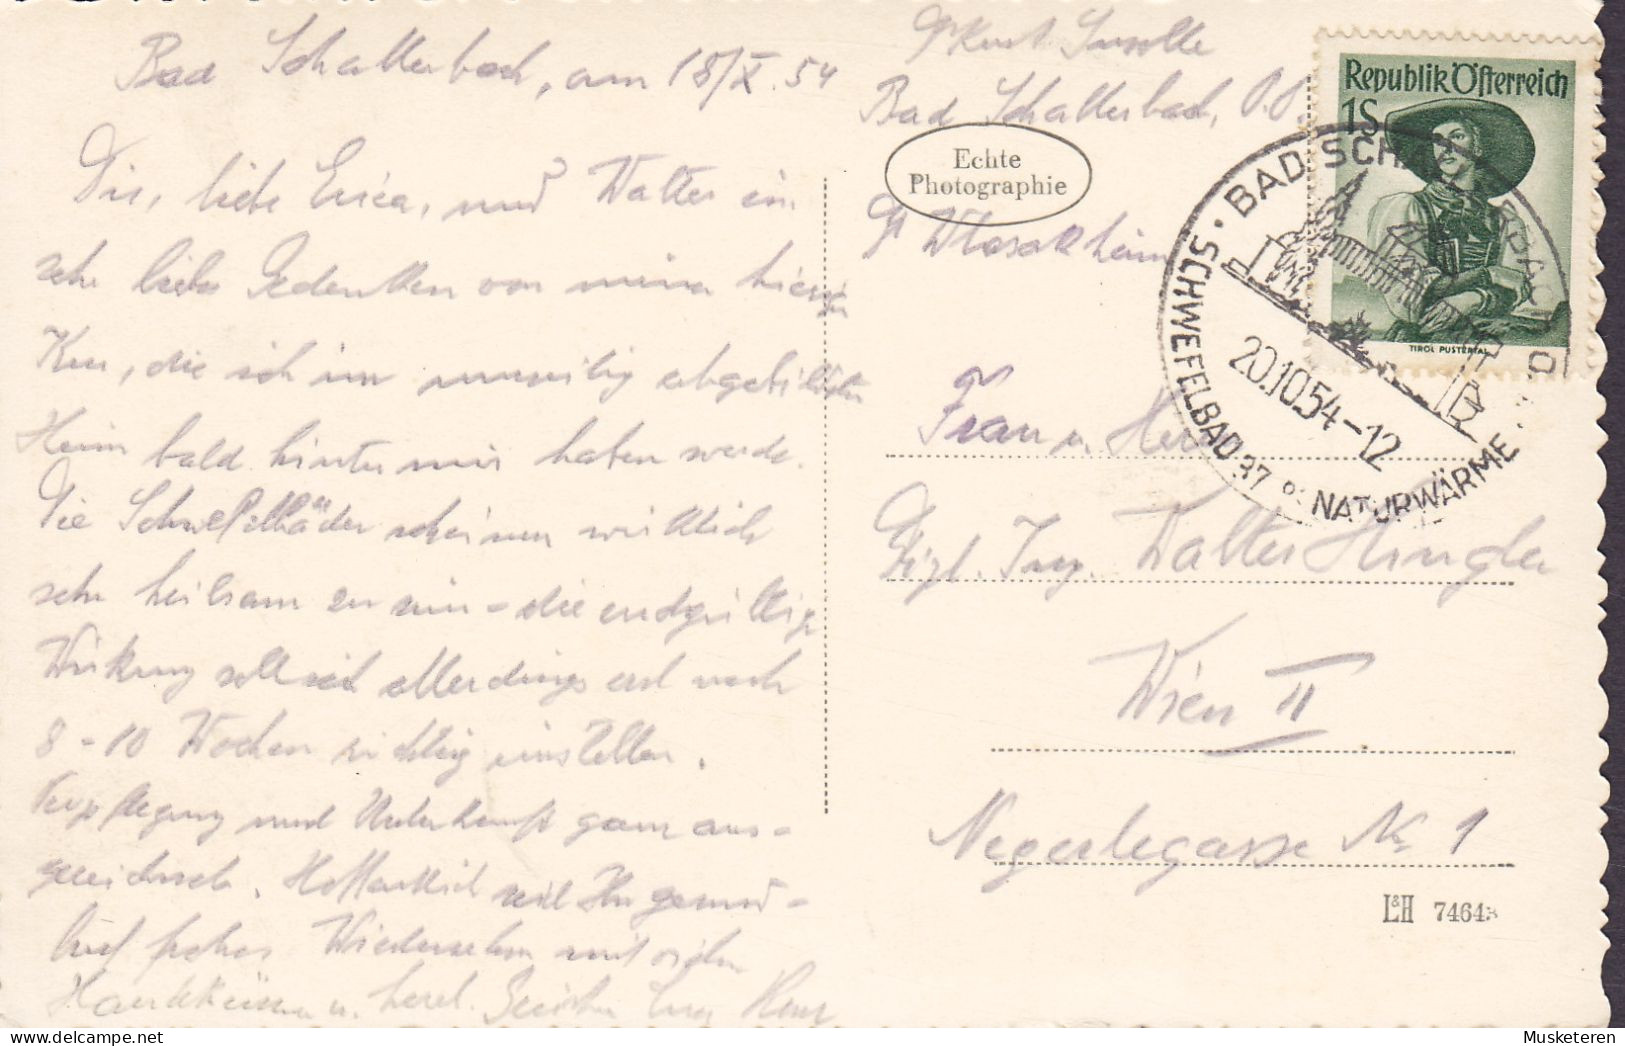 Bad Schallerbach, am 18/X.54
Dir, liebe Erica, und Walter ein
sehr liebes Gedenken von meiner hiesigen
Kur, die ich im umseitig abgebildeten
Heim bald hinter mir haben werde.
Die Schwefelbäder scheinen wirklich
sehr heilsam zu sein - die endgültige
Wirkung soll sich allerdings erst nach
8-10 Wochen richtig einstellen.
Verpflegung und Unterkunft ganz aus-
gezeichnet. Hoffentlich seid Ihr gesund -
Auf frohes Wiedersehen mit vielen
Handküssen u. herzl. Grüßen Euer
Kurt
Bad Schallerbach, O.Ö.
Echte
Photographie
Republik Österreich
1S
TIROL PUSTERTAL
BAD SCHALLERBACH
SCHWEFELBAD 37° NATURWÄRME
20.10.54-12
Frau u. Herr
Dipl. Ing. Walter
Wien II
Negerlegasse Nr. 1
L&H 7464
Musketeren